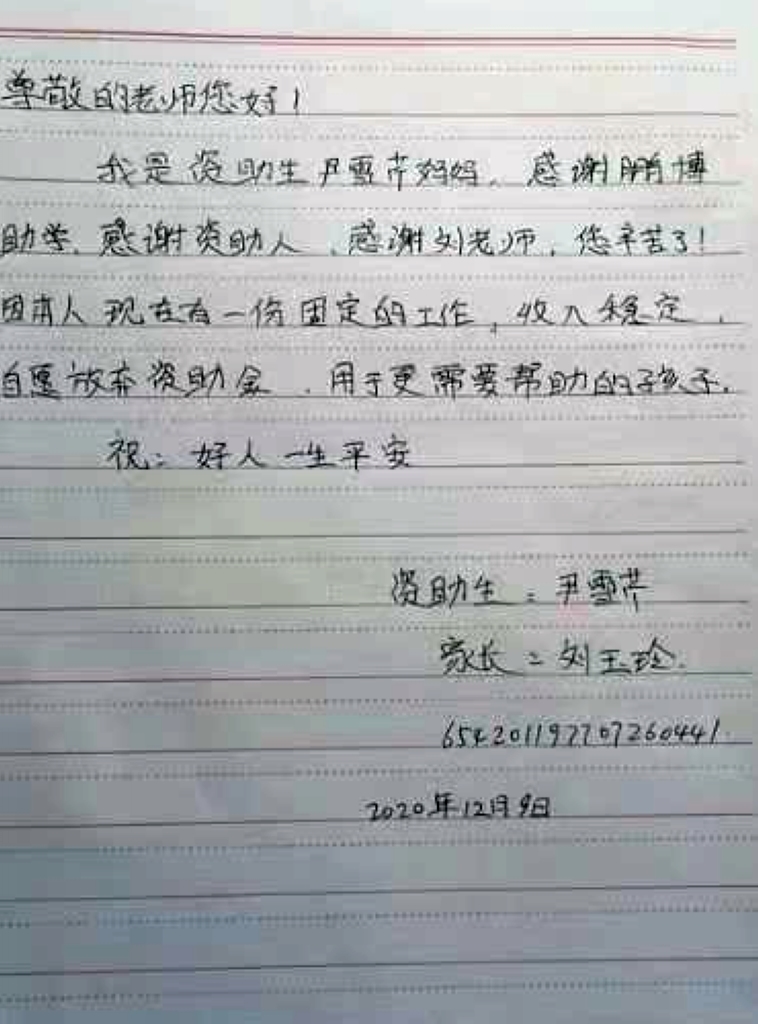 尊敬的老师您好！
我是资助生尹雪芹妈妈、感谢鹏博
助学、感谢资助人、感谢刘老师，您辛苦了！
因本人现在有一份固定的工作，收入稳定，
自愿放弃资助金、用于更需要帮助的孩子.
祝：好人一生平安
资助生：尹雪芹
家长：刘玉玲.
654201197707260441.
2020年12月9日